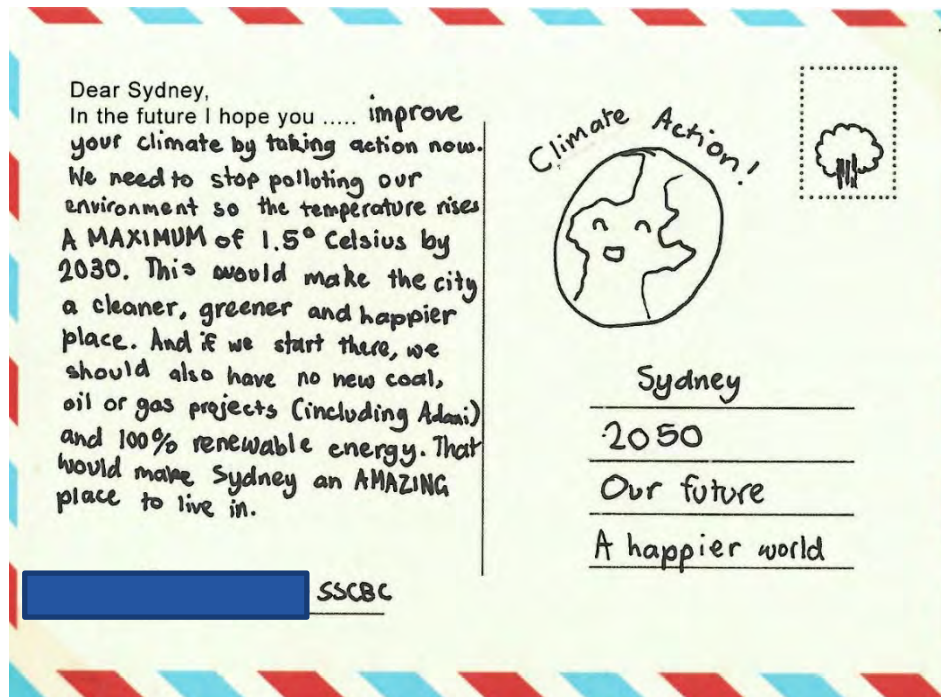 Dear Sydney,
In the future I hope you ..... improve
your climate by taking action now.
We need to stop polluting our
environment so the temperature rises
A MAXIMUM of 1.5° Celsius by
2030. This would make the city
a cleaner, greener and happier
place. And if we start there, we
should also have no new coal,
oil or gas projects (including Adani)
and 100% renewable energy. That
would make Sydney an AMAZING
place to live in.
SSCBC
Climate Action!
Sydney
2050
Our future
A happier world